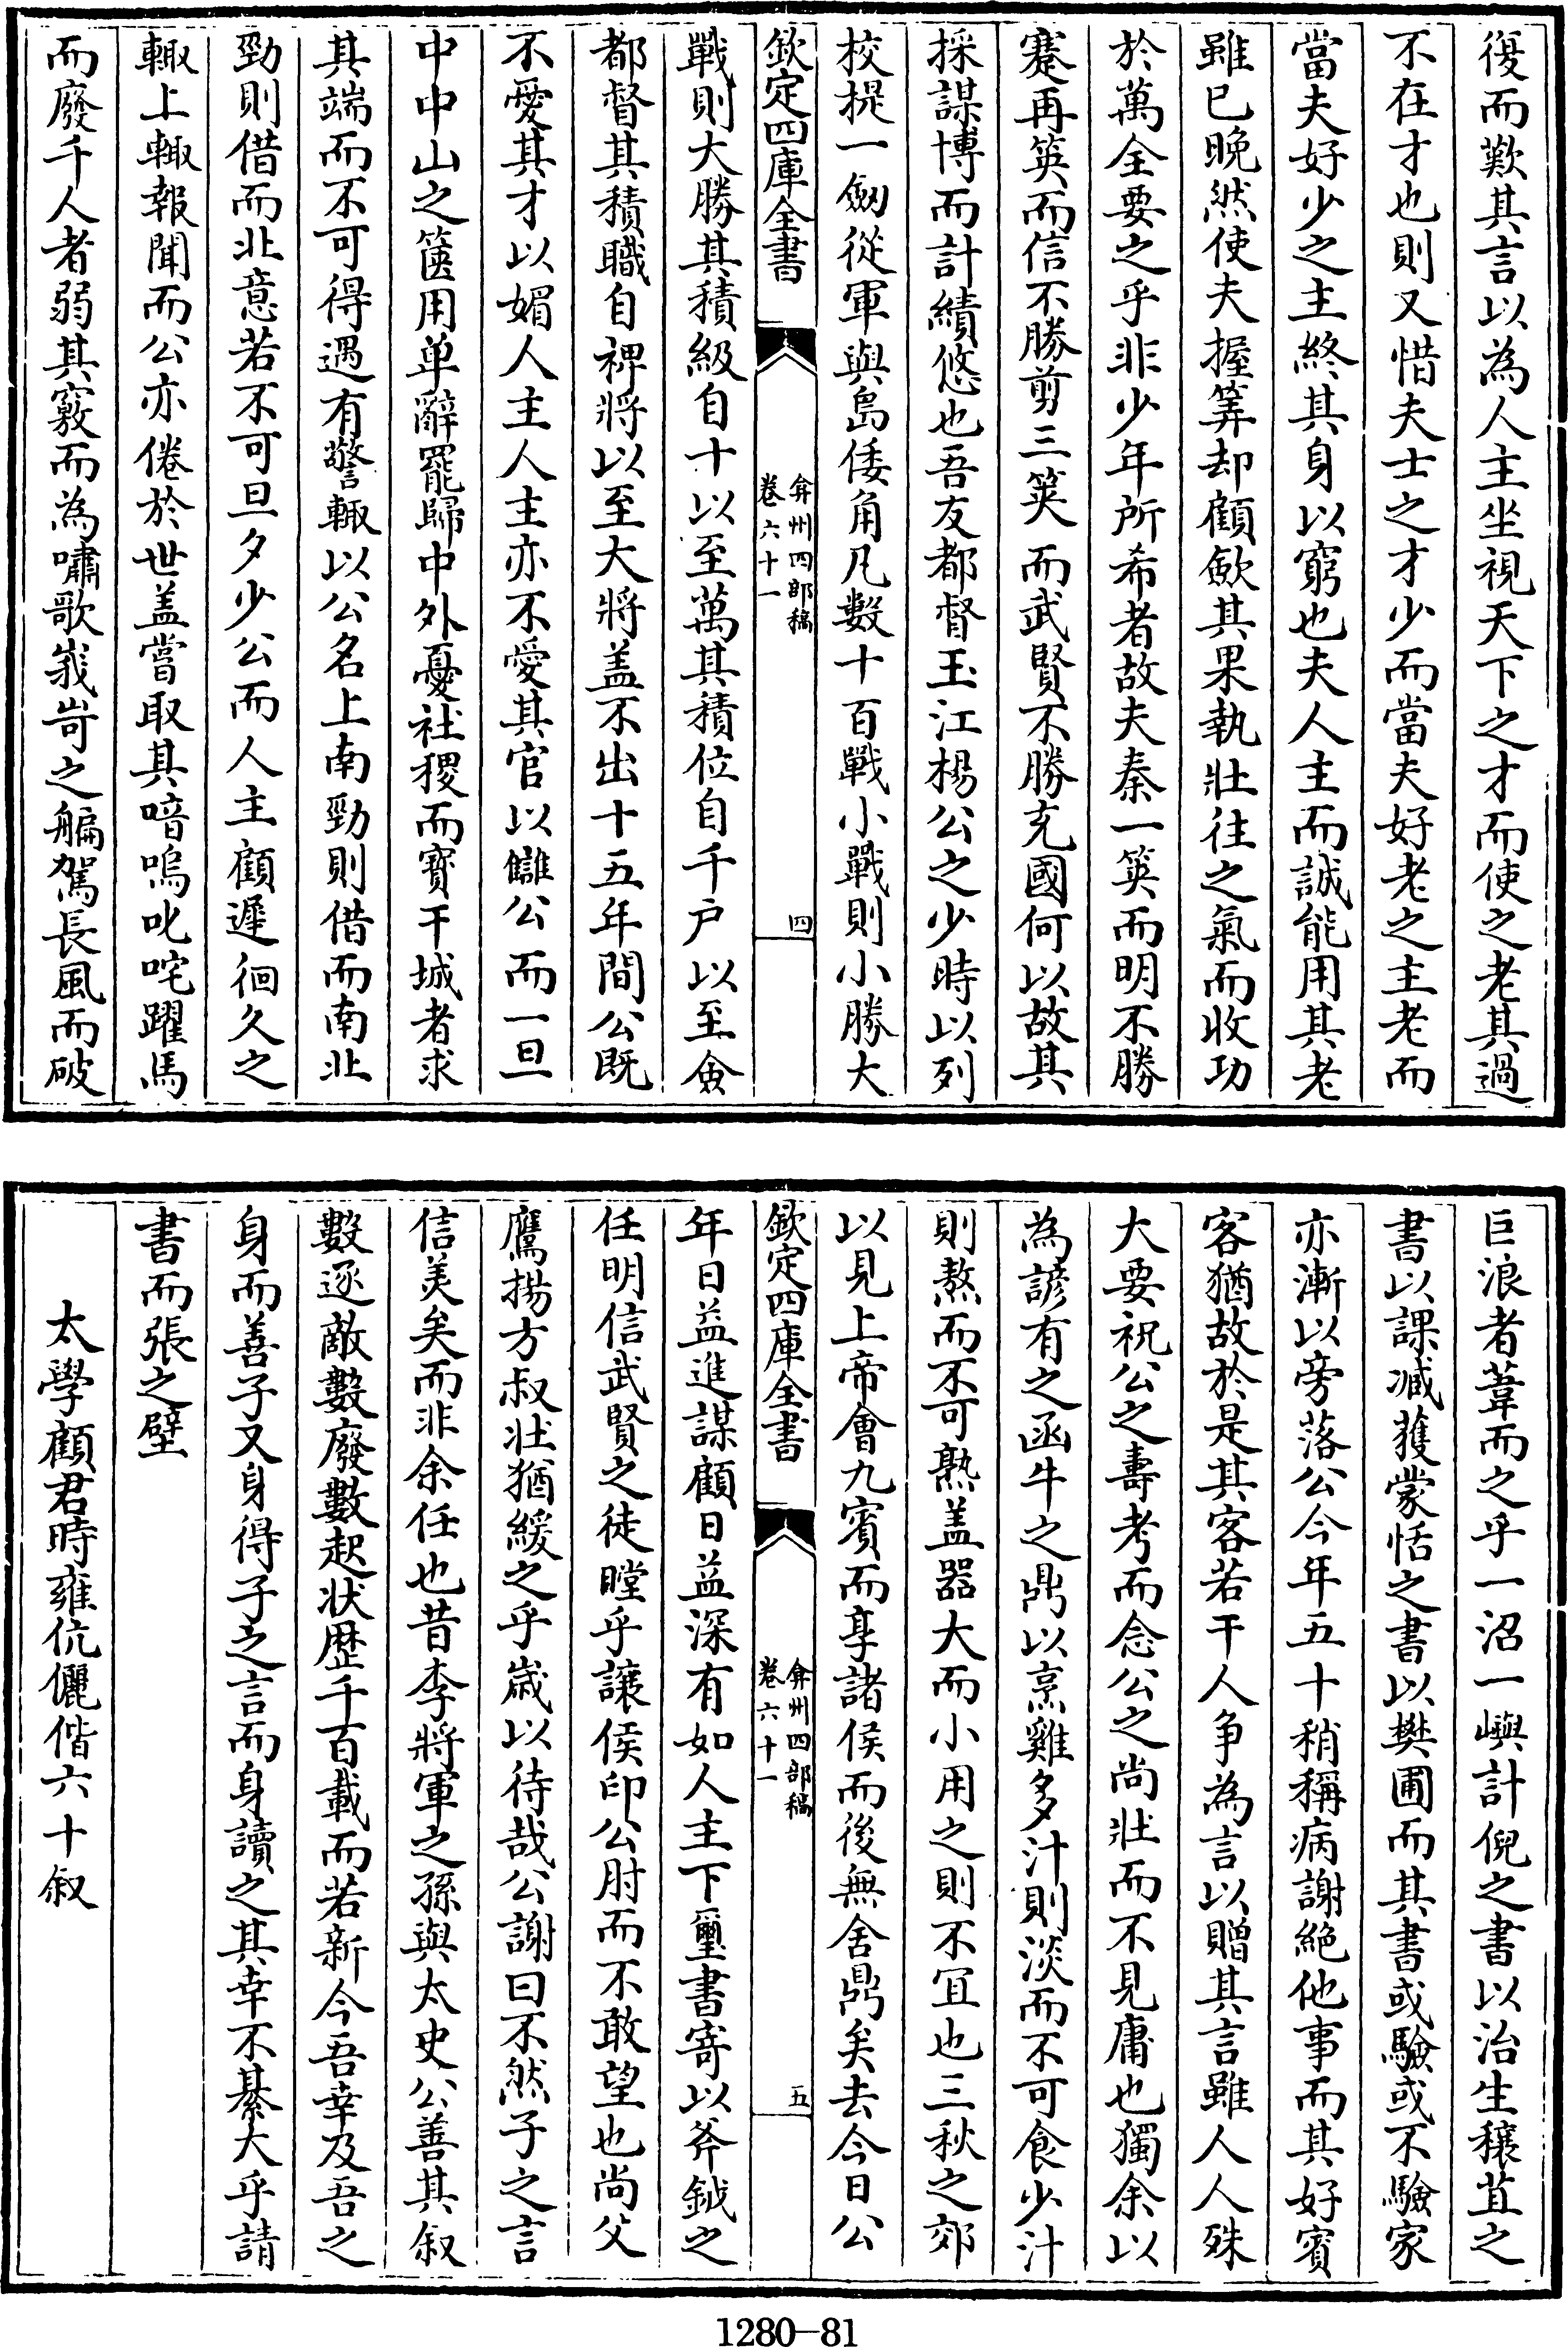 復而歎其言以為人主坐視天下之才而使之老其過
不在才也則又惜夫士之才少而當夫好老之主老而
當夫好少之主終其身以窮也夫人主而誠能用其老
雖已晚然使夫握筭却顧歛其果執壯往之氣而收功
於萬全要之乎非少年所希者故夫秦一筴而明不勝
蹇再筴而信不勝剪三筴而武賢不勝充國何以故其
採謀博而計績悠也吾友都督玉江楊公之少時以列
校提一劒從軍與島倭角凡數十百戰小戰則小勝大
欽定四庫全書
弇州四部稿
卷六十一
四
戰則大勝其積級自十以至萬其積位自千户以至僉
都督其積職自裨將以至大將盖不出十五年間公既
不愛其才以媚人主人主亦不愛其官以讎公而一旦
中中山之篋用单辭罷歸中外憂社稷而寶干城者求
其端而不可得遇有警輙以公名上南勁則借而南北
勁則借而北意若不可旦夕少公而人主顧遲徊久之
輙上輙報聞而公亦倦於世盖嘗取其喑嗚叱咤躍馬
而廢千人者弱其竅而為嘯歌峩岢之艑駕長風而破
巨浪者葦而之乎一沼一嶼計倪之書以治生穰苴之
書以課臧獲蒙恬之書以樊圃而其書或驗或不驗家
亦漸以旁落公今年五十稍稱病謝絶他事而其好賓
客猶故於是其客若干人争為言以贈其言雖人人殊
大要祝公之壽考而念公之尚壯而不見庸也獨余以
為諺有之函牛之鼎以烹雞多汁則淡而不可食少汁
則熬而不可熟盖器大而小用之則不宜也三秋之郊
以見上帝會九賓而享諸侯而後無舍鼎矣去今日公
欽定四庫全書
弇州四部稿
卷六十一
五
年日益進謀顧日益深有如人主下璽書寄以斧鉞之
任明信武賢之徒瞠乎讓侯印公肘而不敢望也尚父
鷹揚方叔壯猶緩之乎歲以待哉公謝曰不然子之言
信美矣而非余任也昔李將軍之孫與太史公善其叙
數逐敵數廢數起状歴千百載而若新今吾幸及吾之
身而善子又身得子之言而身讀之其幸不綦大乎請
書而張之壁
太學顧君時雍伉儷偕六十叙
1280-81